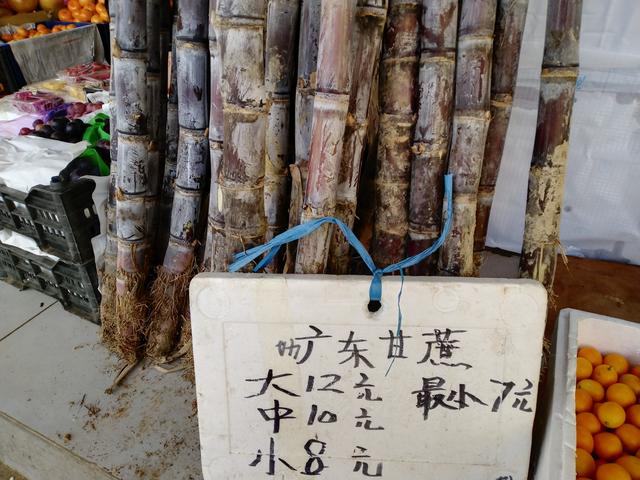 广东甘蔗
大12元 最小7元
中10元
小8元